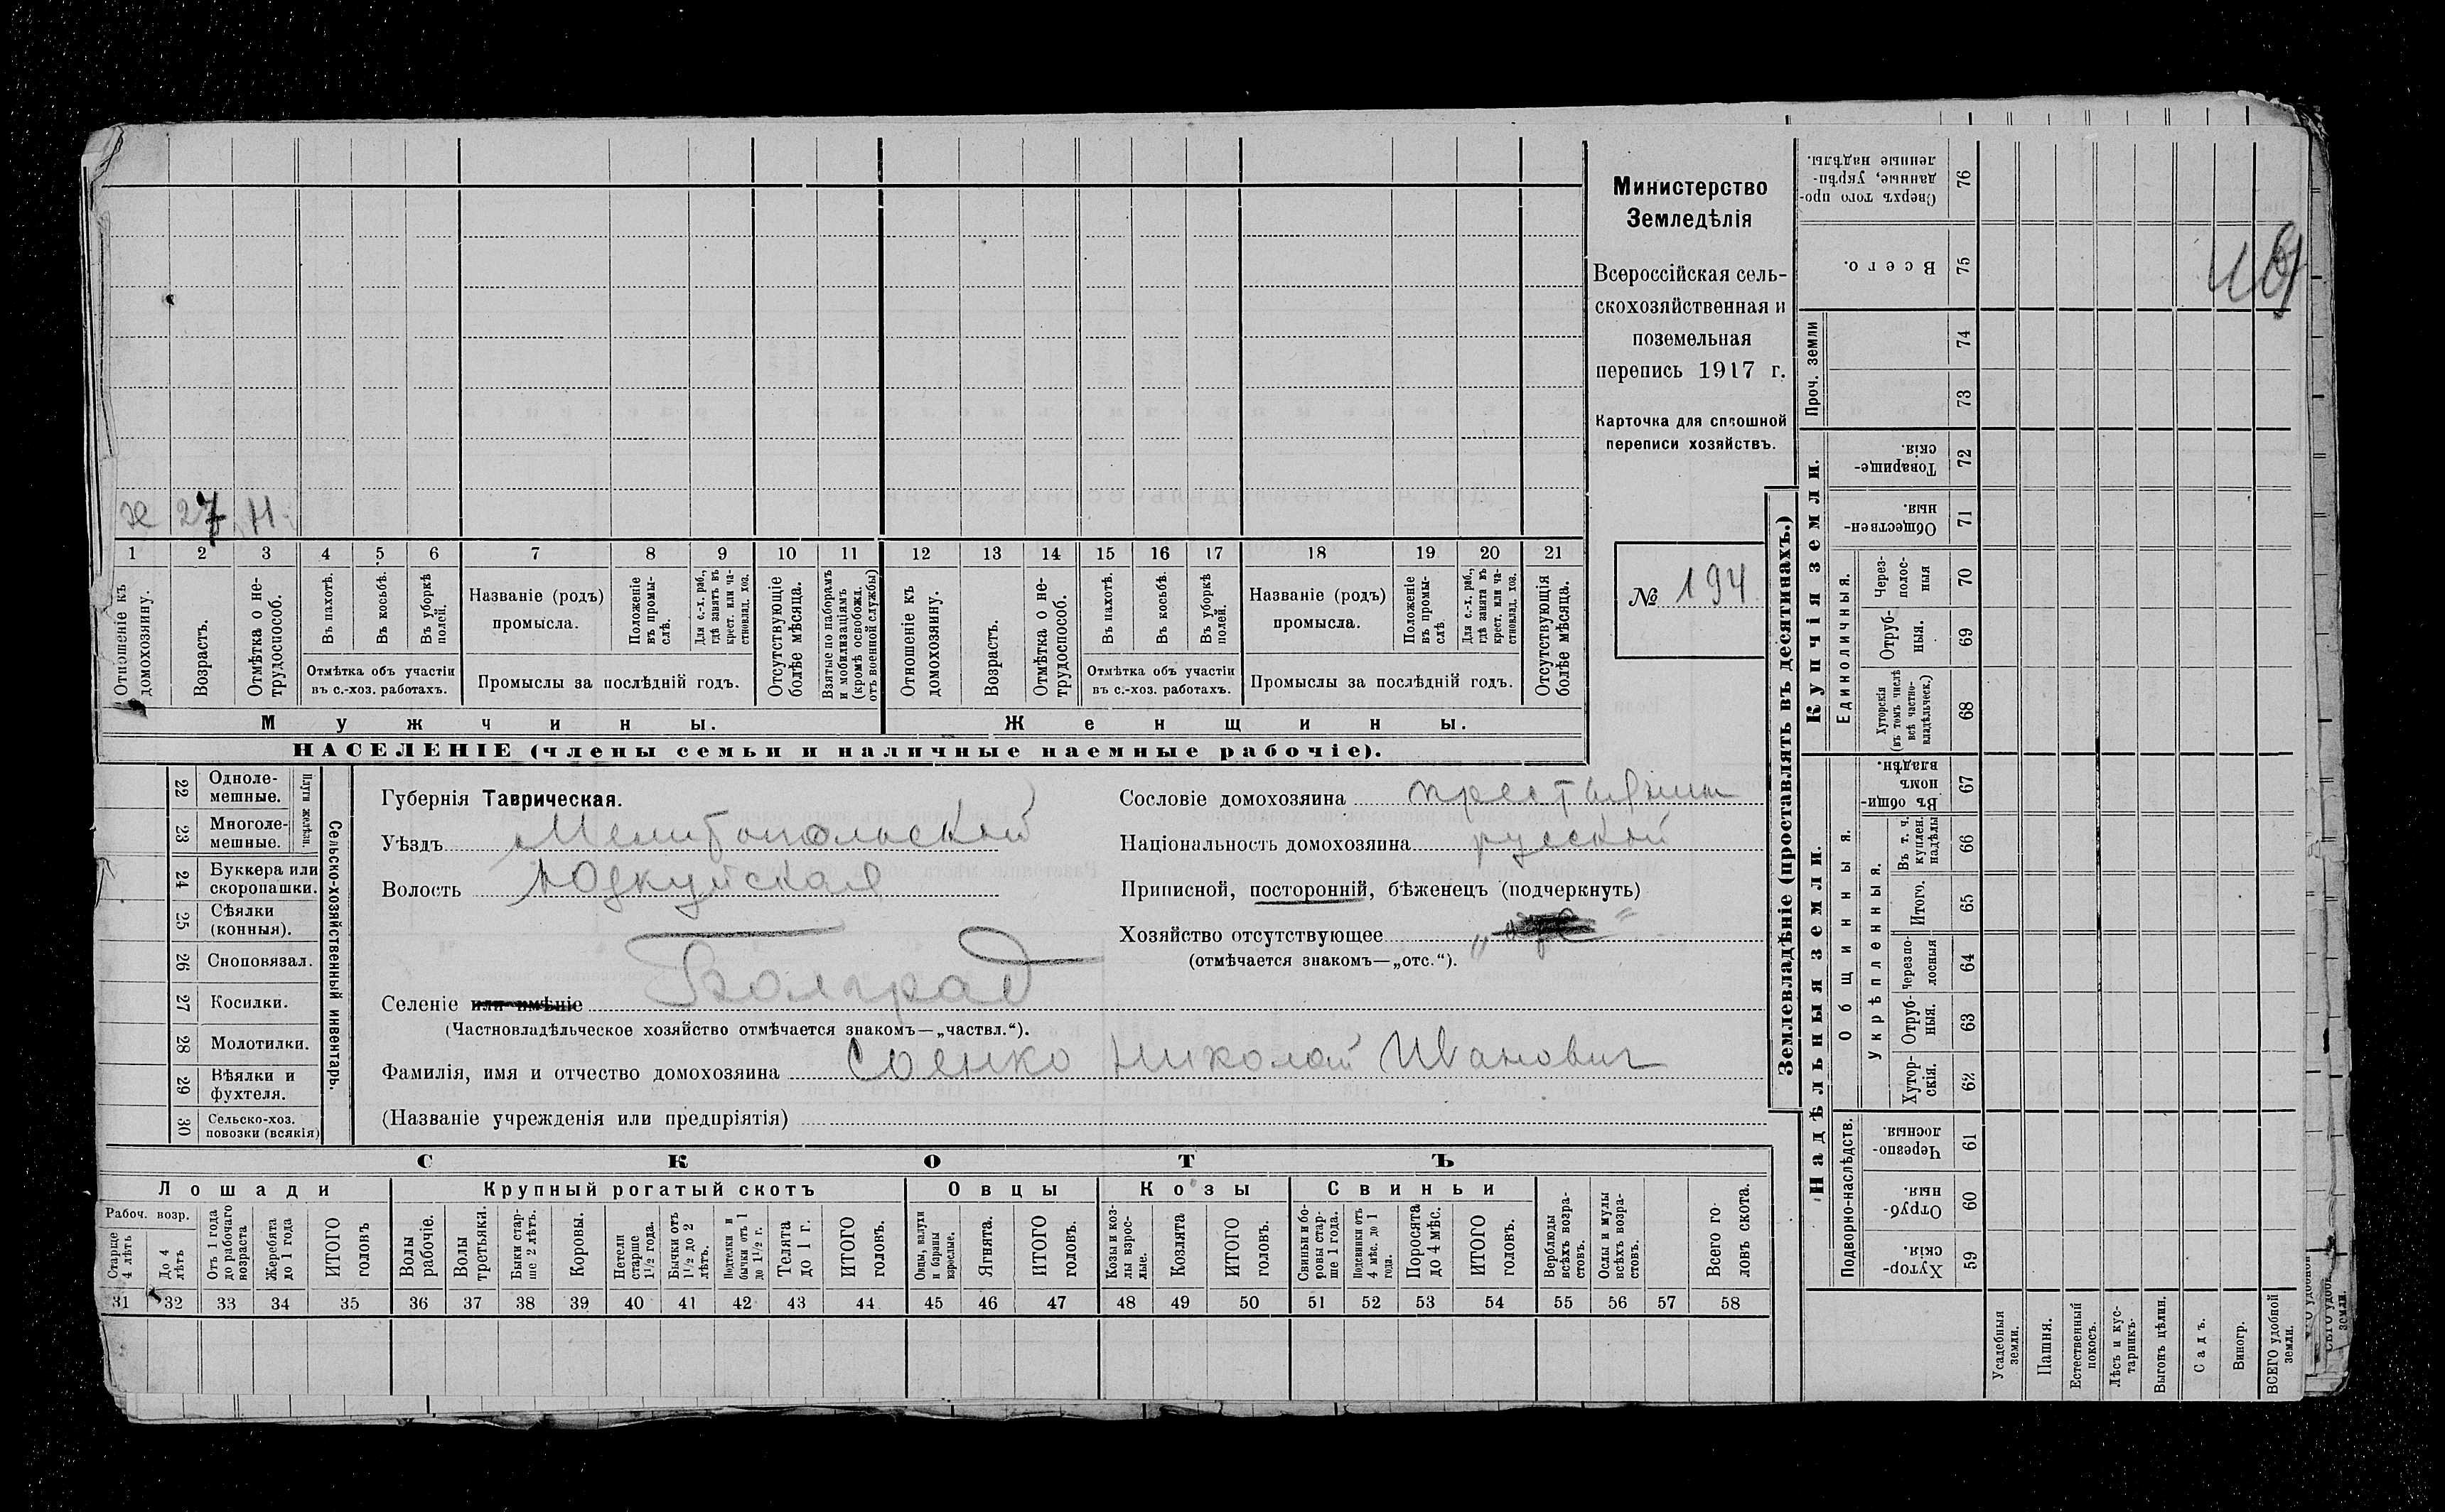 Министерство
Земледѣлія
Всероссійская сель-
скохозяйственная и
поземельная
перепись 1917 г.
Карточка для сплошной
переписи хозяйствъ.
№ 194
х 27 н.
1 2 3 4 5 6 7 8 9 10 11 12 13 14 15 16 17 18 19 20 21
Отношеніе къ домохозяину.
Возрастъ.
Отмѣтка о не-трудоспособ.
Въ пахотѣ.
Въ косьбѣ.
Въ уборкѣ полей.
Отмѣтка объ участіи
въ с.-хоз. работахъ.
Названіе (родъ)
промысла.
Положеніе въ промы-слѣ.
Для с.-х. раб., гдѣ занятъ въ крест. или ча-стновлад. хоз.
Промыслы за послѣдній годъ.
Отсутствующіе болѣе мѣсяца.
Взятые по наборамъ и мобилизаціямъ (кромѣ освобожд. отъ военной службы)
Отношеніе къ домохозяину.
Возрастъ.
Отмѣтка о не-трудоспособ.
Въ пахотѣ.
Въ косьбѣ.
Въ уборкѣ полей.
Отмѣтка объ участіи
въ с.-хоз. работахъ.
Названіе (родъ)
промысла.
Положеніе въ промы-слѣ
Для с.-х. раб., гдѣ занята въ крест. или ча-стновлад. хоз.
Промыслы за послѣдній годъ.
Отсутствующія болѣе мѣсяца.
Мужчины.
Женщины.
НАСЕЛЕНІЕ (члены семьи и наличные наемные рабочіе).
22 Одноле-мешные.
23 Многоле-мешные.
Плуги желѣзн.
24 Буккера или скоропашки.
25 Сѣялки (конныя).
26 Сноповязал.
27 Косилки.
28 Молотилки.
29 Вѣялки и фухтеля.
30 Сельско-хоз. повозки (всякія)
Сельско-хозяйственный инвентарь.
Губернія Таврическая.
Уѣздъ Мелитопольский
Волость Юзкуйская
Селеніе или имѣніе Болград
(Частновладѣльческое хозяйство отмѣчается знакомъ—„частвл.“).
Фамилія, имя и отчество домохозяина Соенко Николай Иванович
(Названіе учрежденія или предпріятія)
Сословіе домохозяина
Національность домохозяина русский
Приписной, посторонній, бѣженецъ (подчеркнуть)
Хозяйство отсутствующее
(отмѣчается знакомъ—„отс.“).
СКОТЪ
Лошади
Крупный рогатый скотъ
Овцы
Козы
Свиньи
Рабоч. возр.
Старше 4 лѣтъ
До 4 лѣтъ
Отъ 1 года до рабочаго возраста
Жеребята до 1 года
ИТОГО головъ
Волы рабочіе.
Волы третьяки.
Быки стар-ше 2 лѣтъ.
Коровы.
Нетели старше 1½ года.
Бычки отъ 1½ до 2 лѣтъ.
Подтелки и бычки отъ 1 до 1½ г.
Телята до 1 г.
ИТОГО головъ.
Овцы, валухи и бараны взрослые.
Ягнята.
ИТОГО головъ.
Козы и коз-лы взрос-лые.
Козлята
ИТОГО головъ.
Свиньи и бо-ровы стар-ше 1 года.
Подсвинки отъ 4 мѣс. до 1 года.
Поросята до 4 мѣс.
ИТОГО головъ.
Верблюды всѣхъ возра-стовъ.
Ослы и мулы всѣхъ возра-стовъ.
Всего го-ловъ скота.
31 32 33 34 35 36 37 38 39 40 41 42 43 44 45 46 47 48 49 50 51 52 53 54 55 56 57 58
Землевладѣніе (проставлять въ десятинахъ.)
Купчія земли.
Надѣльныя земли.
Сверхъ того про-данные, укрѣп-ленные надѣлы. 76
Всего. 75
Проч. земли
74
73
Товарище-скія. 72
Обществен-ныя. 71
Единоличныя.
Через-полос-ныя 70
Отруб-ныя. 69
Хуторскія (въ томъ числѣ всѣ частно-владѣльческ.) 68
Общинныя.
Въ общи-номъ владѣн. 67
Укрѣпленныя.
Въ т. ч. куплен. надѣлы 66
Итого. 65
Черезпо-лосныя 64
Отруб-ныя. 63
Хутор-скія. 62
Подворно-наслѣдств.
Черезпо-лосныя. 61
Отруб-ныя. 60
Хутор-скія. 59
Усадебныя земли.
Пашня.
Естественный покосъ.
Лѣсъ и кус-тарникъ.
Выгонъ цѣлин.
Садъ.
Виногр.
ВСЕГО удобной земли.